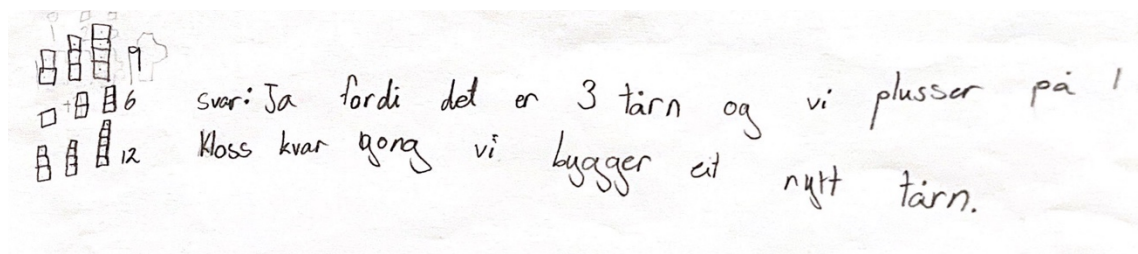 9
6
12
svar: Ja fordi det er 3 tårn og vi plusser på 1
kloss kvar gong vi bygger eit nytt tårn.